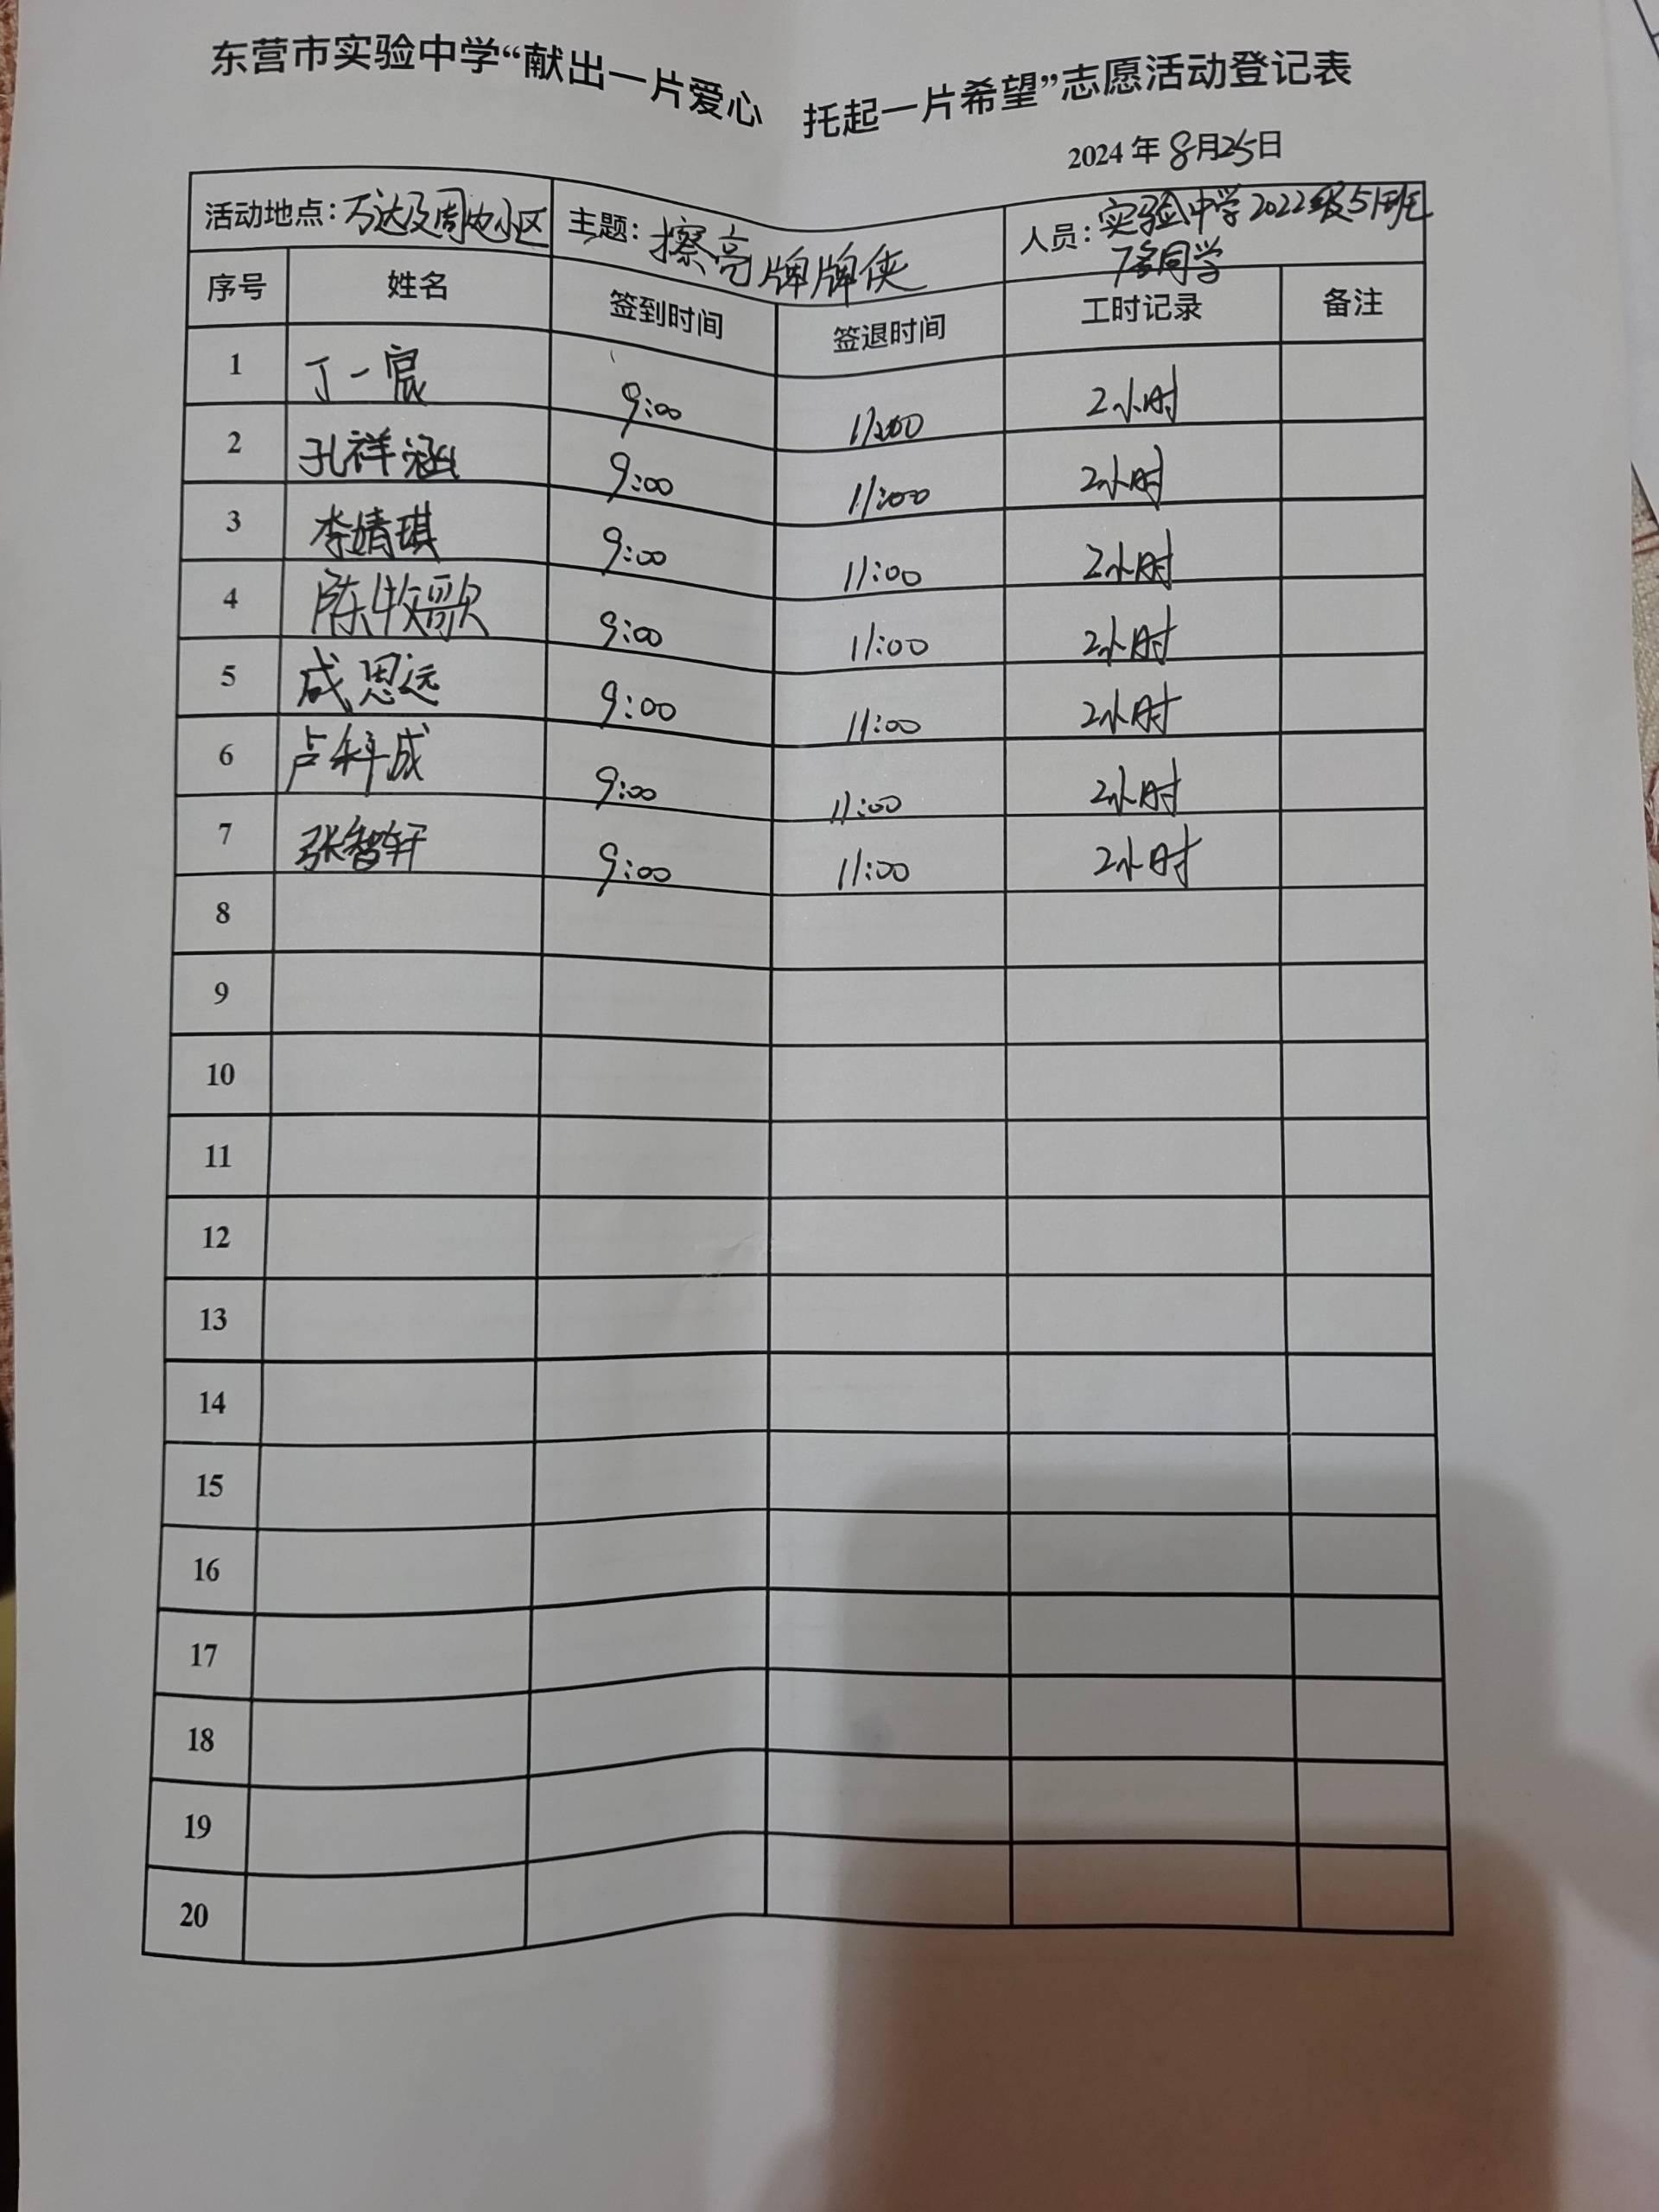 东营市实验中学“献出一片爱心 托起一片希望”志愿活动登记表
2024年8月25日
活动地点:万达及周边小区 主题:擦亮牌牌侠 人员:实验中学2022级51班
7名同学
序号 姓名 签到时间 签退时间 工时记录 备注
1 丁一宸 9:00 11:00 2小时
2 孔祥涵 9:00 11:00 2小时
3 李婧琪 9:00 11:00 2小时
4 陈牧歌 9:00 11:00 2小时
5 成思远 9:00 11:00 2小时
6 卢科成 9:00 11:00 2小时
7 张智轩 9:00 11:00 2小时
8
9
10
11
12
13
14
15
16
17
18
19
20